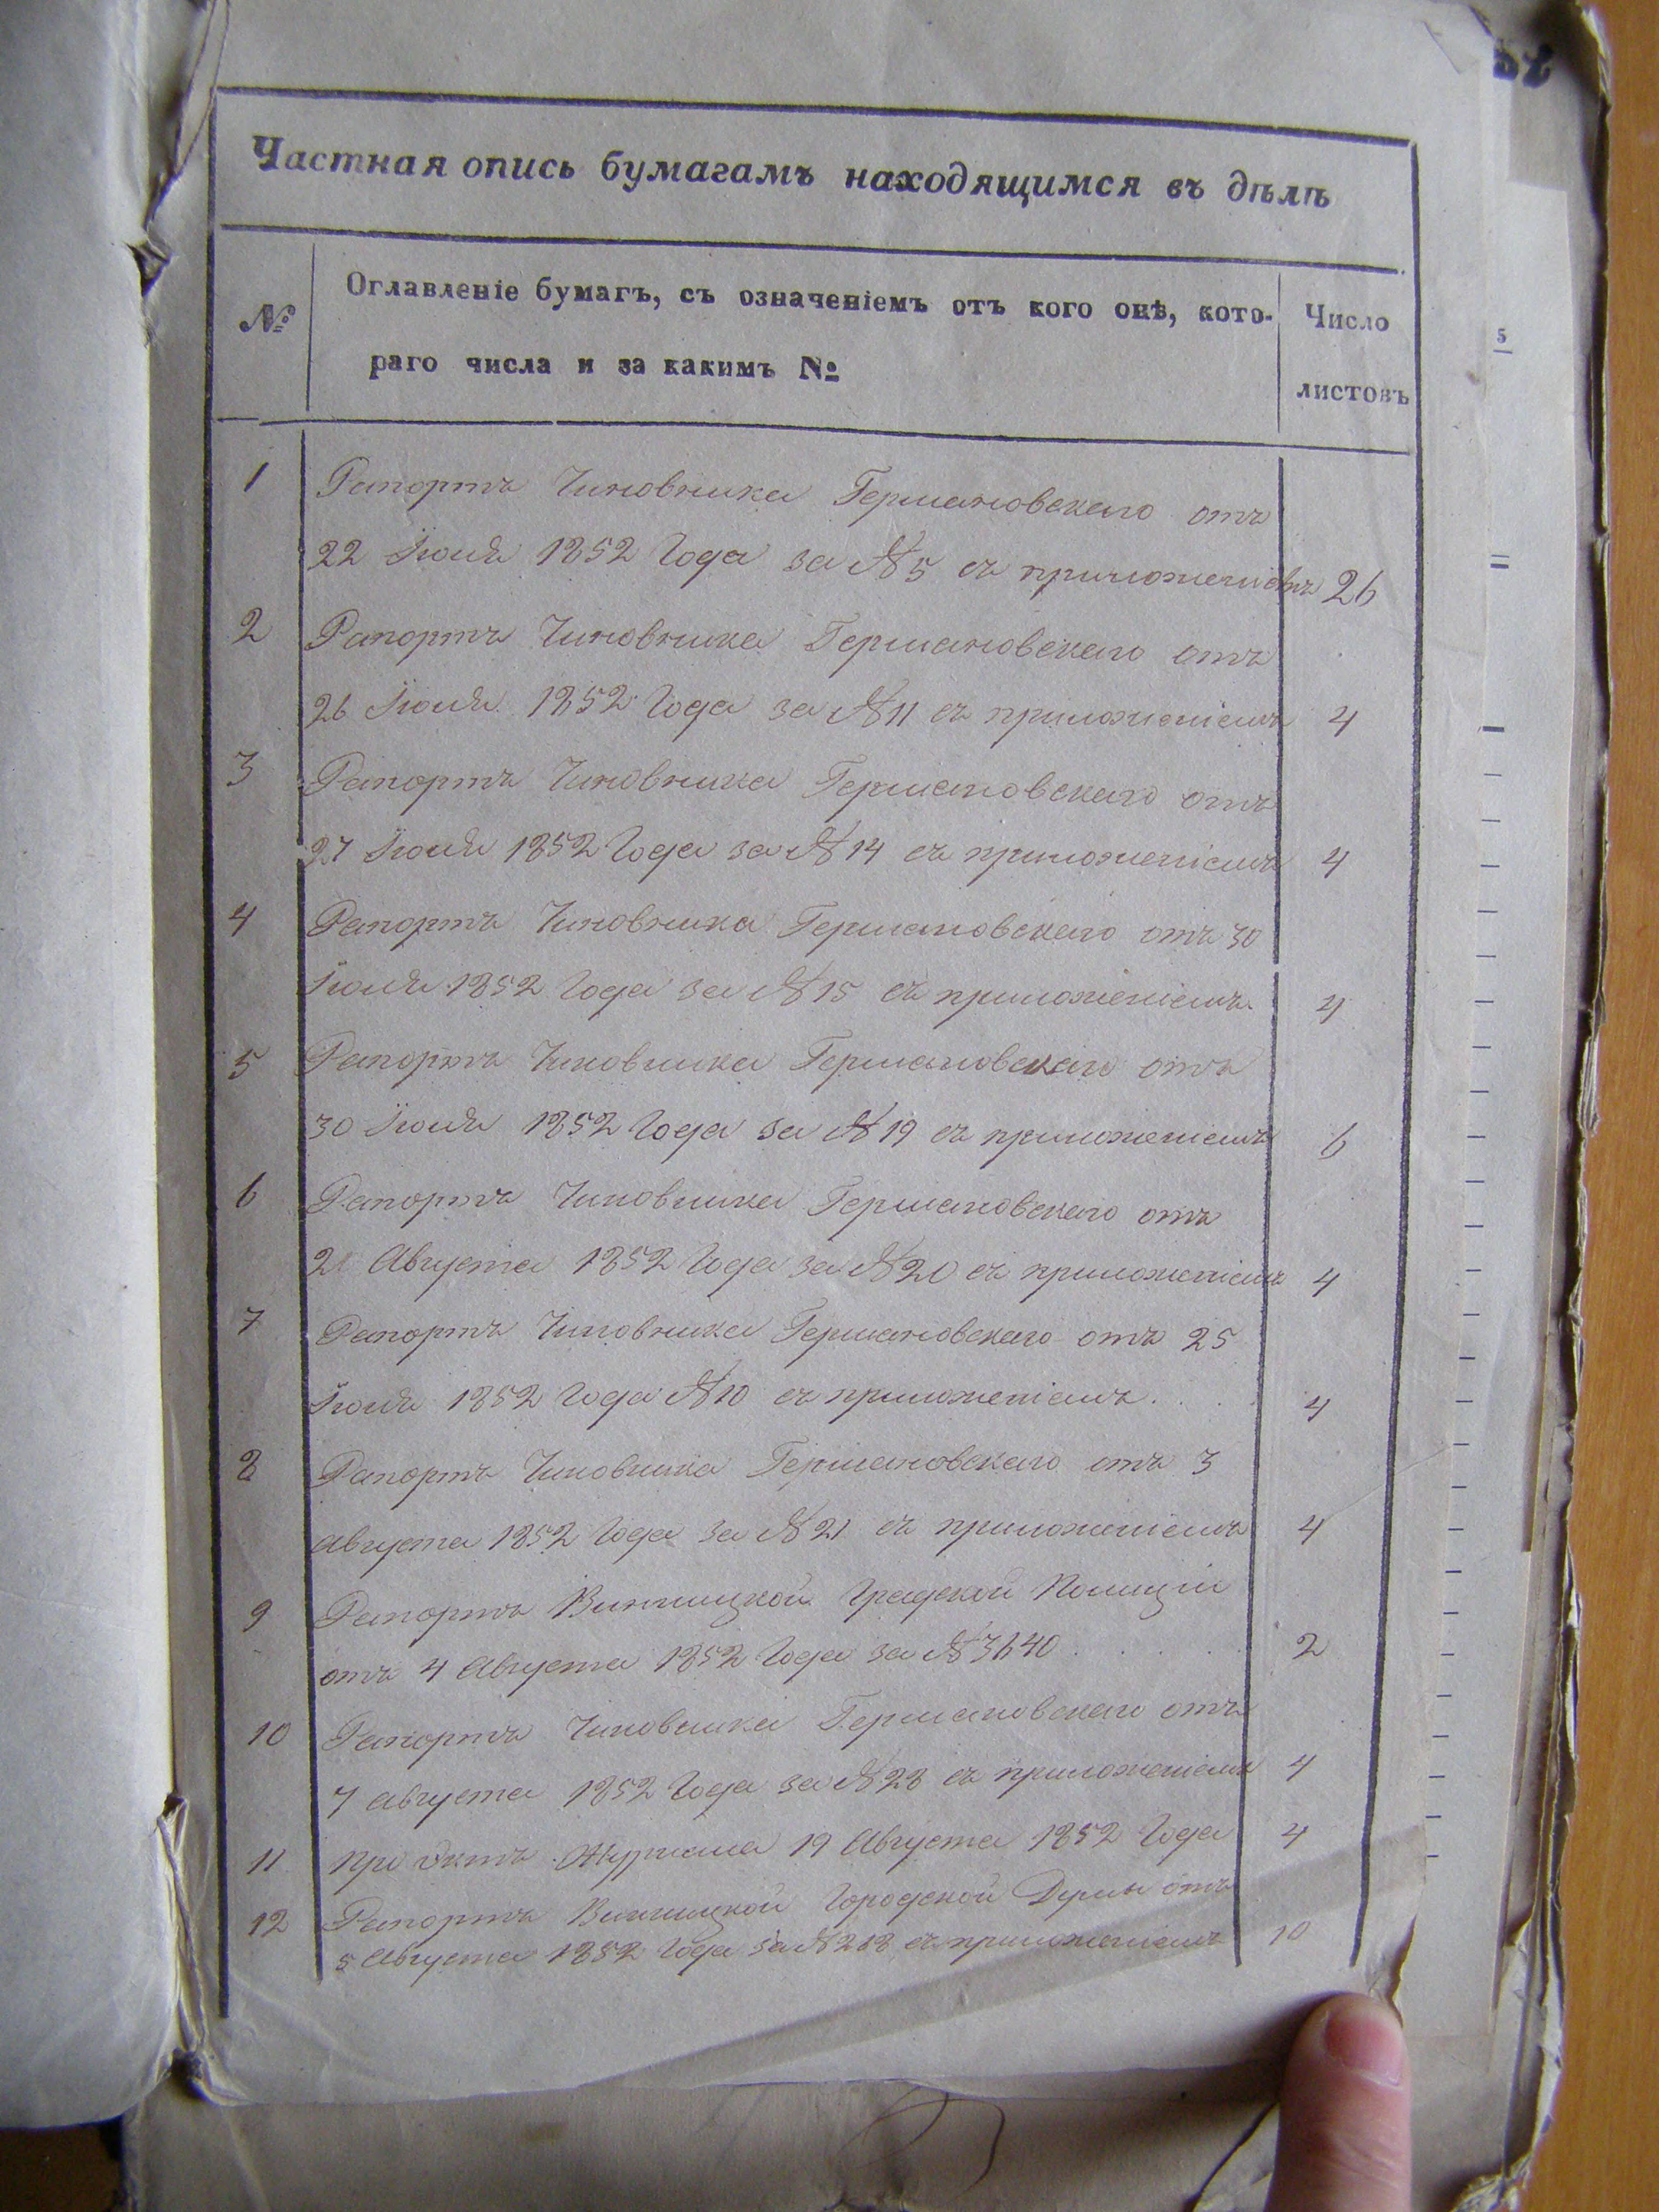 Частная опись бумагамъ находящимся въ дѣлѣ
№
Оглавленіе бумагъ, съ означеніемъ отъ кого онѣ, кото-
раго числа и за какимъ №
Число
листовъ
1 Рапортъ Чиновника Германовскаго отъ
22 Іюля 1852 Года за № 5 съ приложеніемъ 26
2 Рапортъ Чиновника Германовскаго отъ
26 Іюля 1852 Года за № 11 съ приложеніемъ 4
3 Рапортъ Чиновника Германовскаго отъ
27 Іюля 1852 Года за № 14 съ приложеніемъ 4
4 Рапортъ Чиновника Германовскаго отъ 30
Іюля 1852 Года за № 15 съ приложеніемъ 4
5 Рапортъ Чиновника Германовскаго отъ
30 Іюля 1852 Года за № 19 съ приложеніемъ 6
6 Рапортъ Чиновника Германовскаго отъ
Августа 1852 Года за № 20 съ приложеніемъ 4
7 Рапортъ Чиновника Германовскаго отъ 25
Іюля 1852 Года № 10 съ приложеніемъ . . . . 4
8 Рапортъ Чиновника Германовскаго отъ 3
Августа 1852 Года за № 21 съ приложеніемъ 4
9 Рапортъ Винницкой Градской Полиціи
отъ 4 Августа 1852 Года за № 3640 . . . . . 2
10 Рапортъ Чиновника Германовскаго отъ
7 Августа 1852 Года за № 28 съ приложеніемъ 4
11 Журнала 19 Августа 1852 Года 4
12 Рапортъ Винницкой Городской Думы отъ
5 Августа 1852 Года за № съ приложеніемъ 10
5